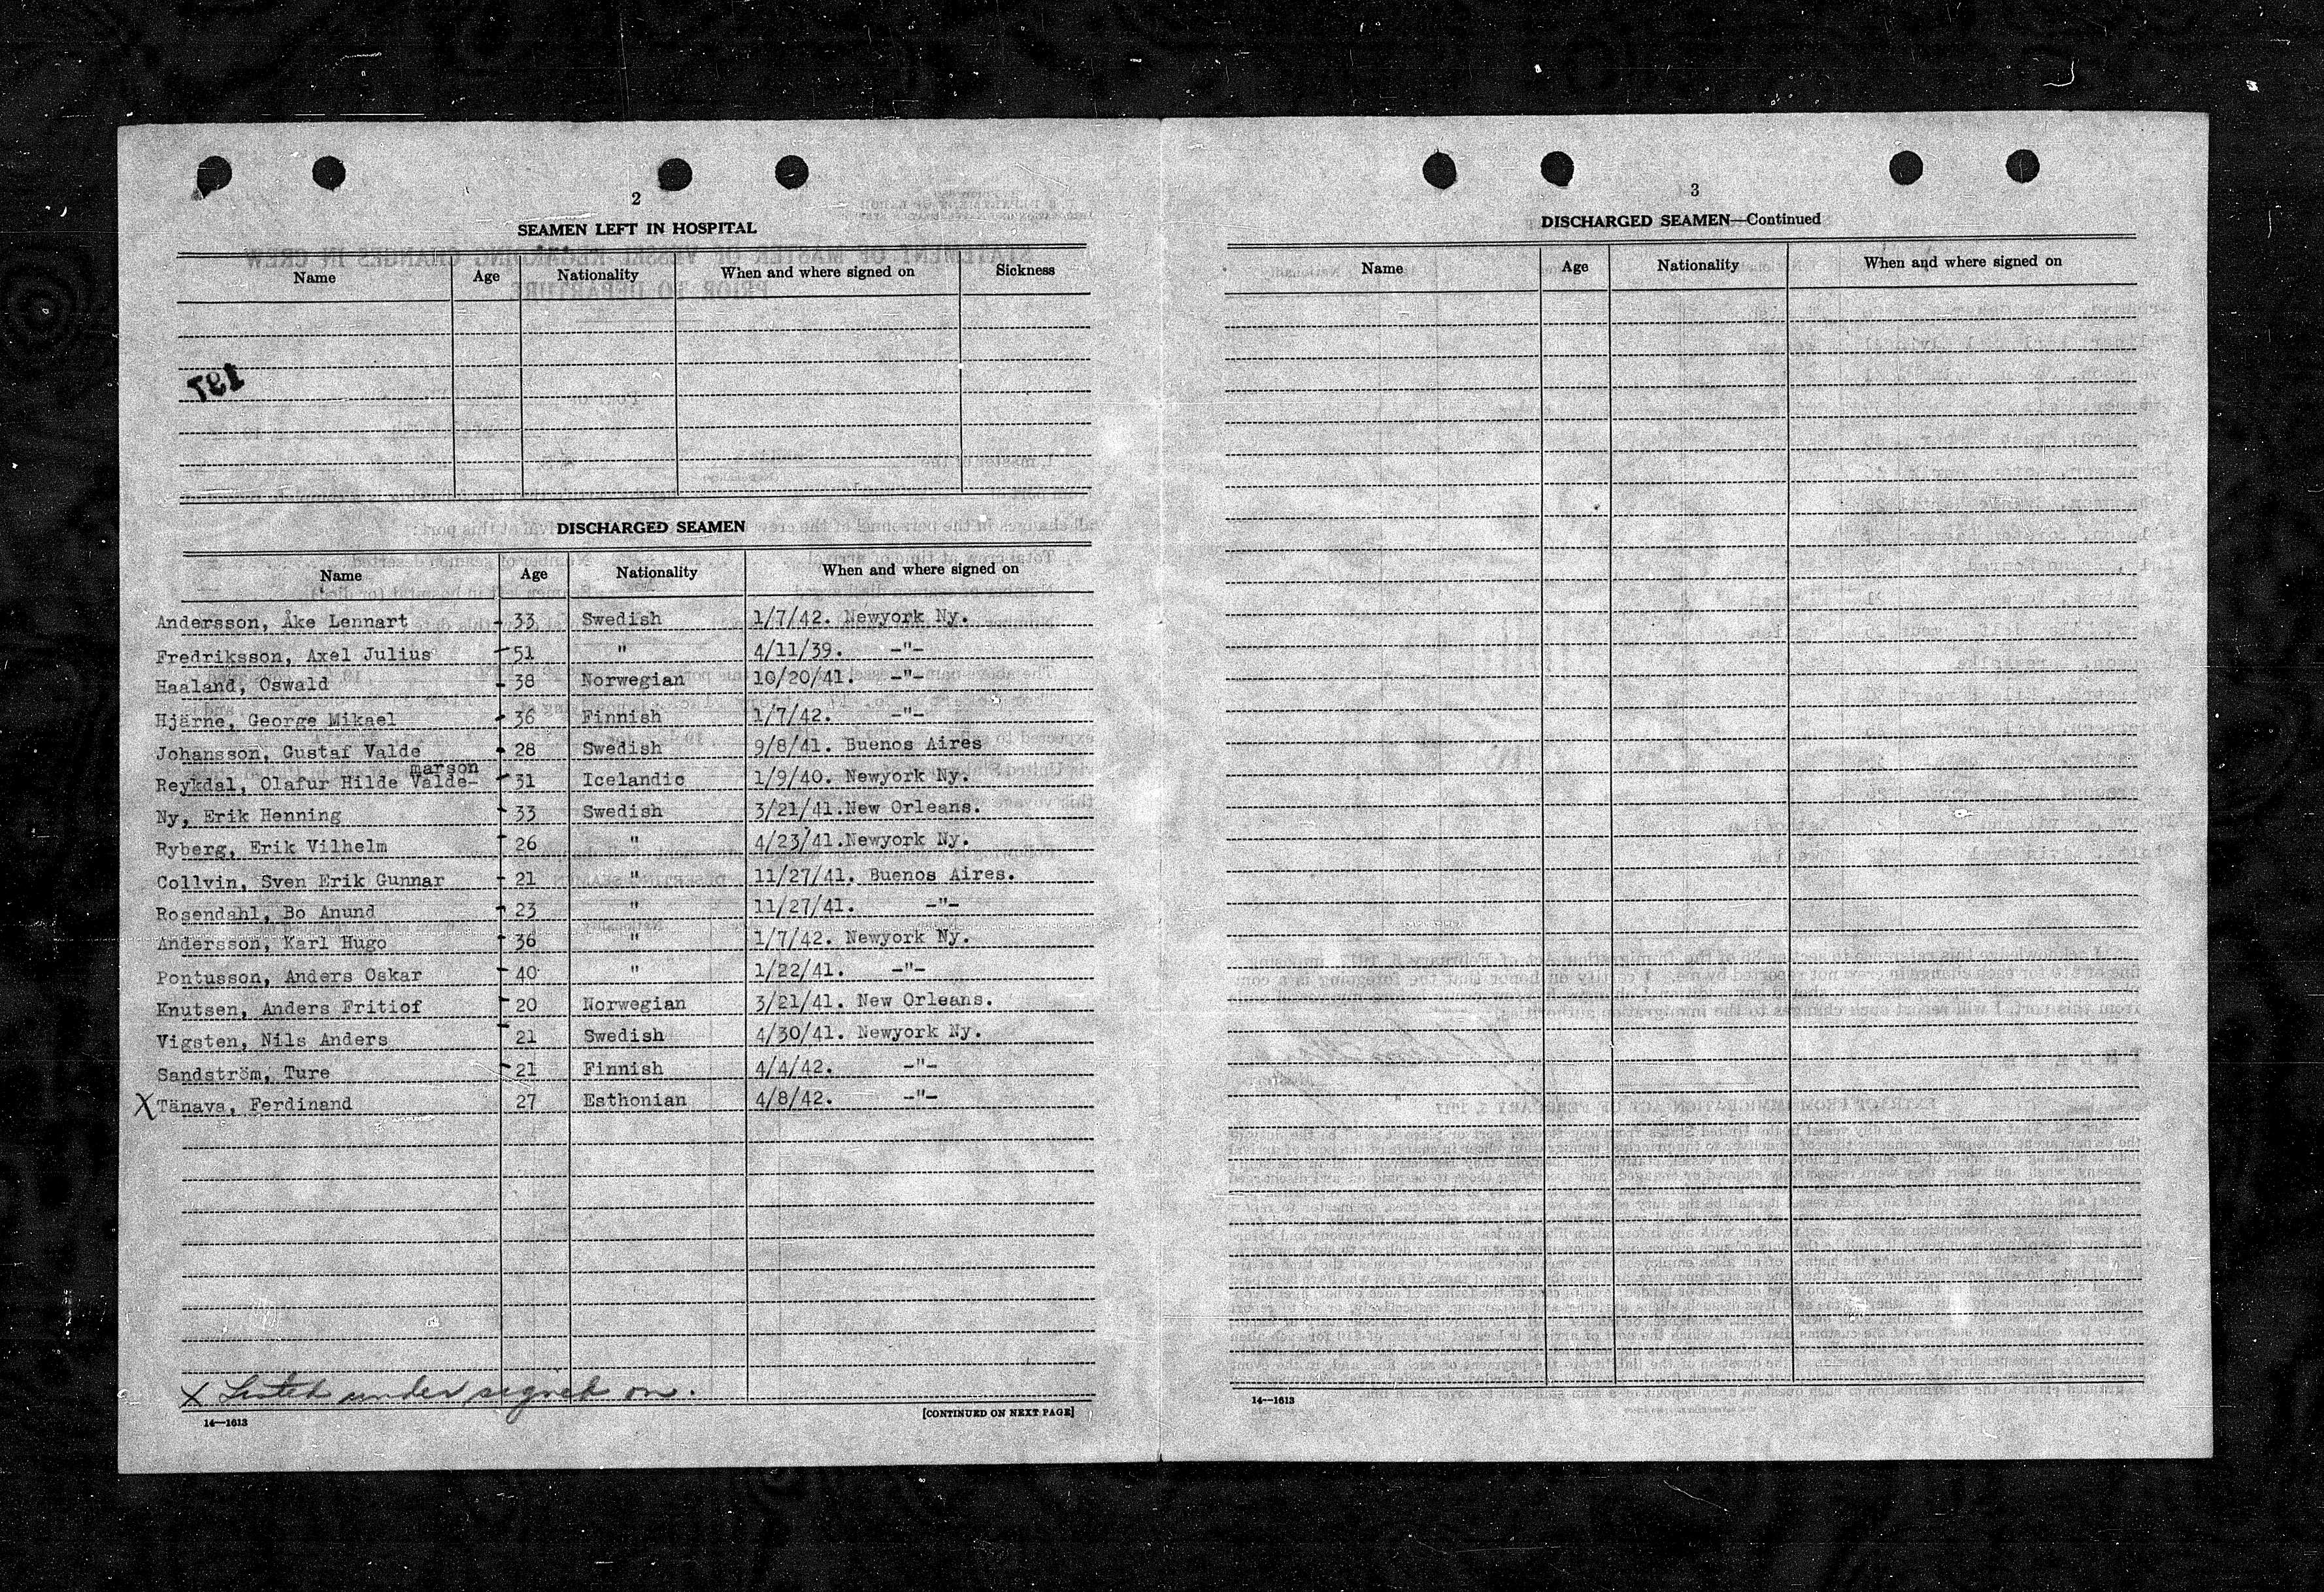 2
SEAMEN LEFT IN HOSPITAL
Name Age Nationality When and where signed on Sickness
191
DISCHARGED SEAMEN
Name Age Nationality When and where signed on
Andersson, Åke Lennart - 33 Swedish 1/7/42. Newyork Ny.
Fredriksson, Axel Julius - 51 " 4/11/39. -"-
Haaland, Oswald - 38 Norwegian 10/20/41. -"-
Hjärne, George Mikael - 36 Finnish 1/7/42. -"-
Johansson, Gustaf Valde - 28 Swedish 9/8/41. Buenos Aires
marson
Reykdal, Olafur Hilde Valde- - 31 Icelandic 1/9/40. Newyork Ny.
Ny, Erik Henning - 33 Swedish 3/21/41.New Orleans.
Ryberg, Erik Vilhelm - 26 " 4/23/41.Newyork Ny.
Collvin, Sven Erik Gunnar - 21 " 11/27/41. Buenos Aires.
Rosendahl, Bo Anund - 23 " 11/27/41. -"-
Andersson, Karl Hugo - 36 " 1/7/42. Newyork Ny.
Pontusson, Anders Oskar - 40 " 1/22/41. -"-
Knutsen, Anders Fritiof - 20 Norwegian 3/21/41. New Orleans.
Vigsten, Nils Anders - 21 Swedish 4/30/41. Newyork Ny.
Sandström, Ture - 21 Finnish 4/4/42. -"-
X Tänava, Ferdinand 27 Esthonian 4/8/42. -"-
X Listed under signed on.
14—1613 [CONTINUED ON NEXT PAGE]
3
DISCHARGED SEAMEN—Continued
Name Age Nationality When and where signed on
14—1613